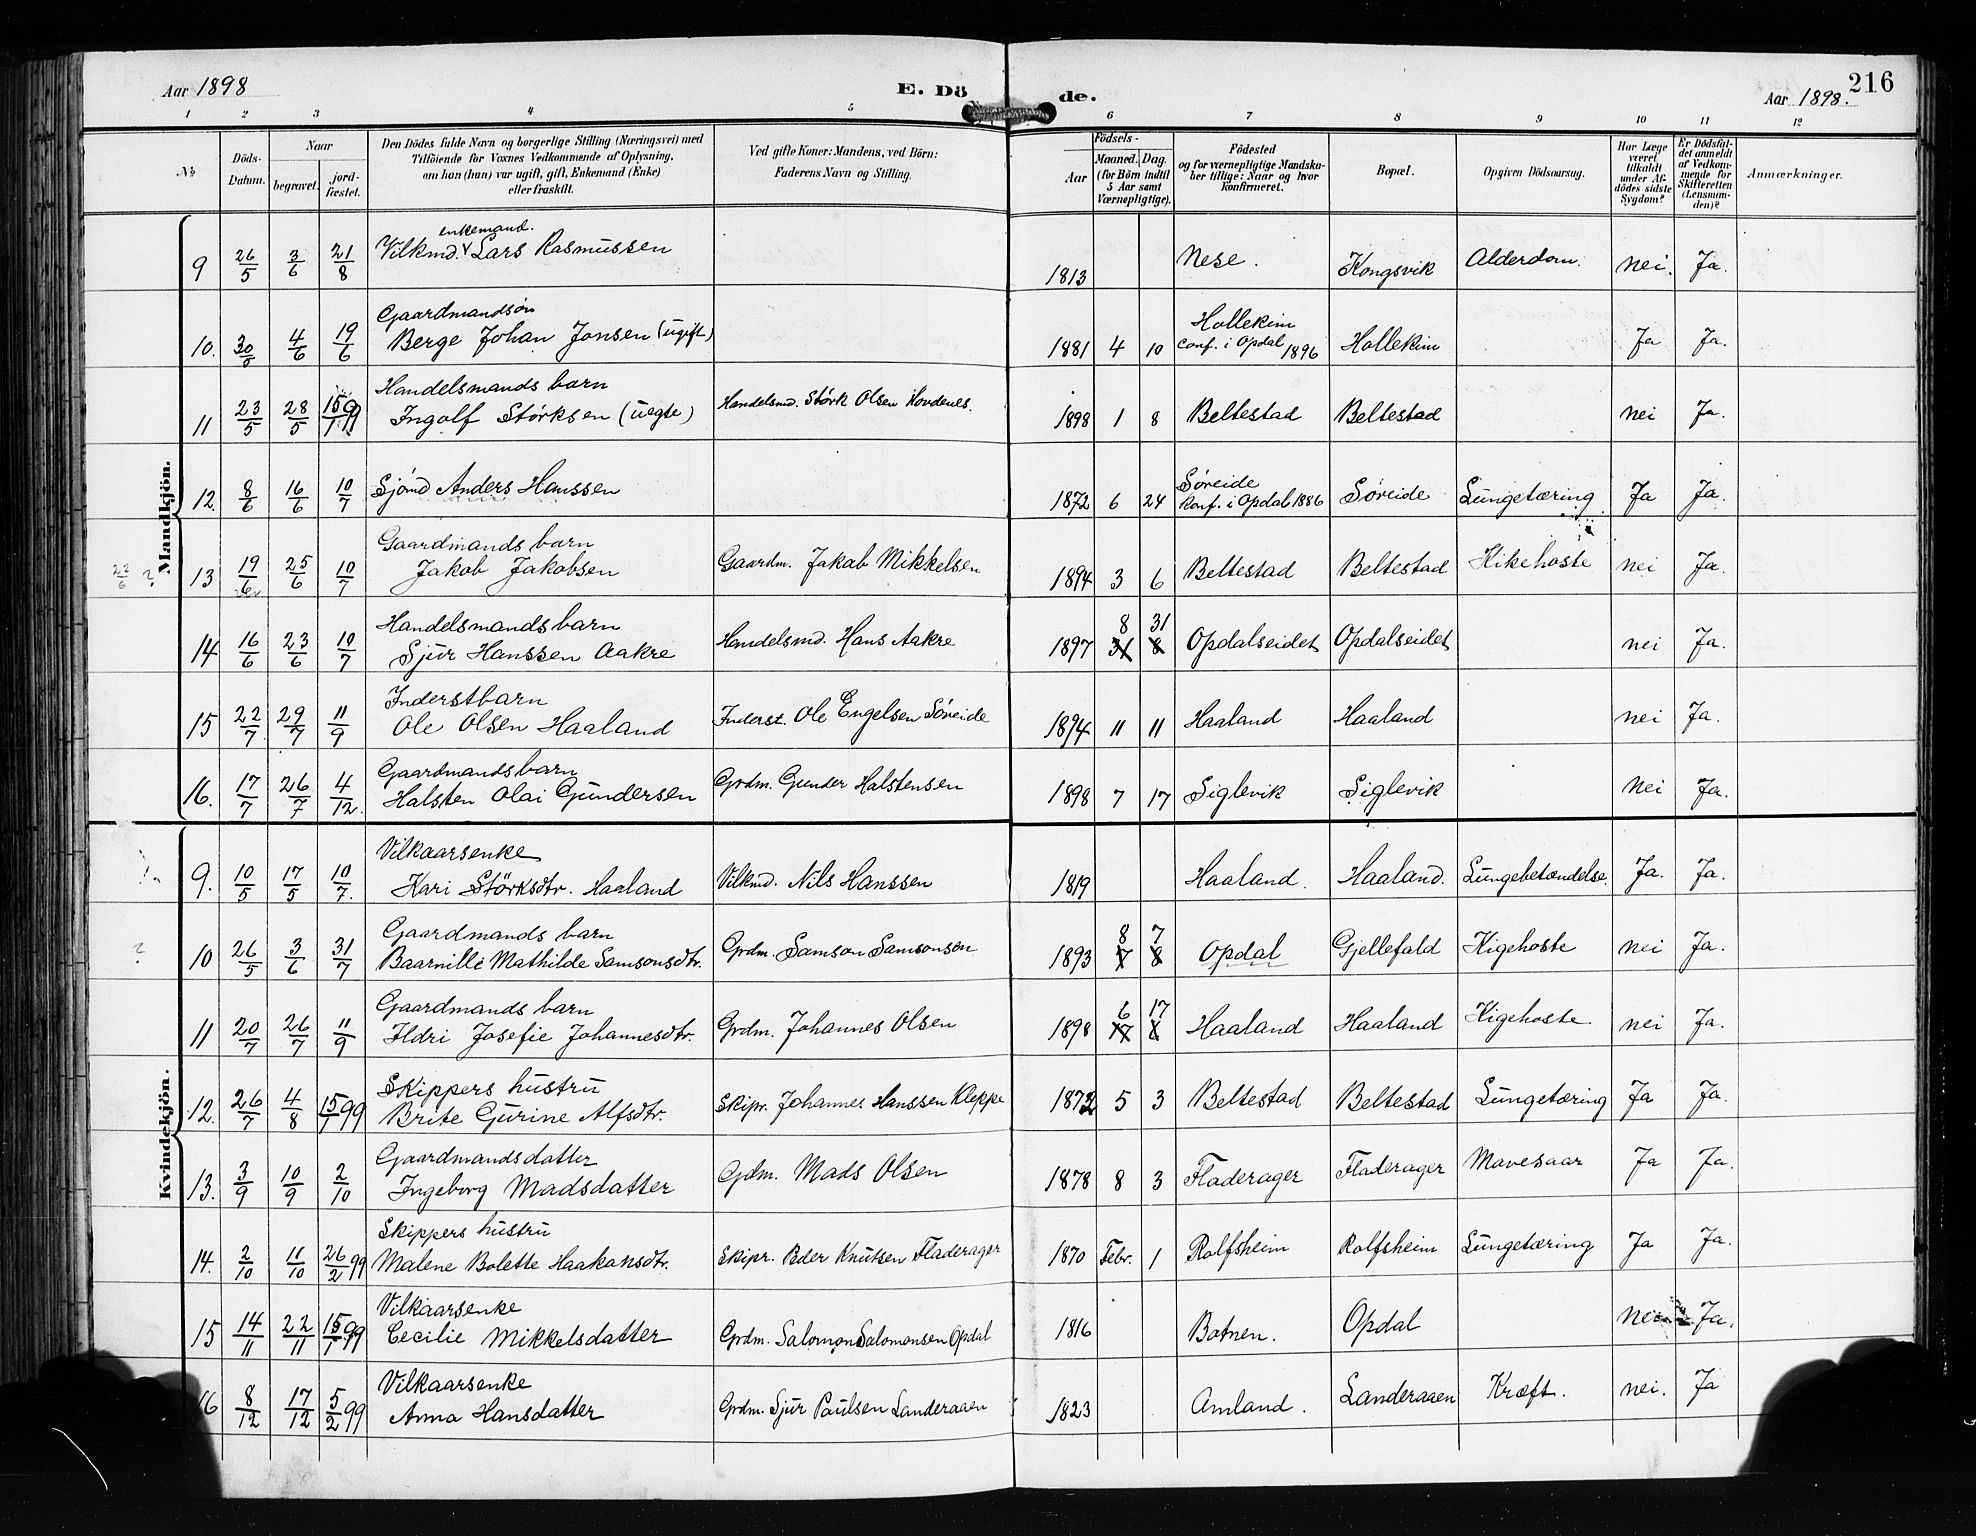 Aar 1898
E. Dö
de.
216
Aar 1898.
1 2 3 4 5 6 7 8 9 10 11 12
No
Döds-Datum.
Naar
begravet.
jord-fæstet.
Den Dödes fulde Navn og borgerlige Stilling (Næringsvei) med
Tilföiende for Voxnes Vedkommende af Oplysning,
om han (hun) var ugift, gift, Enkemand (Enke)
eller fraskilt.
Ved gifte Koner: Mandens, ved Börn:
Faderens Navn og Stilling.
Födsels-
Aar
Maaned. Dag.
(for Börn indtil
5 Aar samt
Værnepligtige).
Födested
og for værnepligtige Mandsku-
ber tillige: Naar og hvor
konfirmeret.
Bopæl.
Opgiven Dödsaarsag.
Har Læge
været
tilkaldt
under Af-
dödes sidste
Sygdom?
Er Dödsfal-
det anmeldt
af Vedkom-
mende for
Skifteretten
(Lensman-
den)?
Anmærkninger.
Mandkjön.
enkemand.
9 26/5 3/6 21/8 Vilkmd. V Lars Rasmussen 1813 Nese. Kongsvik Alderdom. nei. Ja.
Gaardmandsøn
10. 30/5 4/6 19/6 Berge Johan Jonsen (ugift) 1881 4 10 Hollekim conf. i Opdal 1896 Hollekim Ja Ja.
Handelsmands barn
11 23/5 28/5 15/1 99 Ingolf Størksen (uegte) Handelsmd. Størk Olsen Hovdenes. 1898 1 8 Beltestad Beltestad nei Ja.
12. 8/6 16/6 10/7 Sjømd Anders Hanssen 1872 6 24 Søreide Konf. i Opdal 1886 Søreide Lungetæring Ja Ja.
Gaardmands barn
22/6 ? 13 19/6 25/6 10/7 Jakob Jakobsen Gaardm. Jakob Mikkelsen 1894 3 6 Beltestad Beltestad Kikehoste nei Ja.
Handelsmands barn
14 16/6 23/6 10/7 Sjur Hanssen Aakre Handelsmd. Hans Aakre 1897 8 31 31 8 Opdalseidet Opdalseidet nei Ja.
Inderstbarn
15 22/7 29/7 11/9 Ole Olsen Haaland Inderst. Ole Engelsen Søreide 1894 11 11 Haaland Haaland nei Ja.
Gaardmandsbarn
16. 17/7 26/7 4/12. Halsten Olai Gundersen Grdm. Gunder Halstensen 1898 7 17 Siglevik Siglevik Nei Ja.
Kvindekjön.
Vilkaarsenke
9. 10/5 17/5 10/7. Kari Størksdtr. Haaland Vilkmd. Nils Hanssen 1819 Haaland. Haaland. Lungebetændelse. Ja. Ja.
Gaardmands barn
? 10 26/5 3/6 31/7 Baarnille Mathilde Samsonsdtr. Grdm. Samson Samsonsøn 1893 8 7 7 8 Opdal Gjellefald Kigehoste nei Ja.
Gaardmands barn
11 20/7 26/7 11/9 Ildri Josefie Johannesdtr. Grdm. Johannes Olsen 1898 6 17 17 6 Haaland Haaland Kigehoste nei Ja.
Skippers hustru
12. 26/7 4/8 15/1 99 Brite Gurine Alfsdtr. Skipr. Johannes Hanssen Kleppe 1872 5 3 Beltestad Beltestad Lungetæring Ja Ja.
Gaardmandsdatter
13. 3/9 10/9 2/10 Ingeborg Madsdatter Gdm. Mads Olsen 1878 8 3 Fladerager Fladerager Mavesaar Ja Ja.
Skippers hustru
14. 2/10 11/10 26/2 99 Malene Bolette Haakonsdtr. Skipr. Peder Knutsen Fladerager 1870 Febr. 1 Rolfsheim Rolfsheim Lungetæring Ja Ja.
Vilkaarsenke
15 14/11 22/11 15/1 99 Cecilie Mikkelsdatter Grdm. Salomon Salomonsen Opdal 1816 Botnen. Opdal nei Ja.
Vilkaarsenke
16 8/12 17/12 5/2 99 Anna Hansdatter Grdm. Sjur Paulsen Landeraaen 1823 Amland. Landeraaen Kræft. nei. Ja